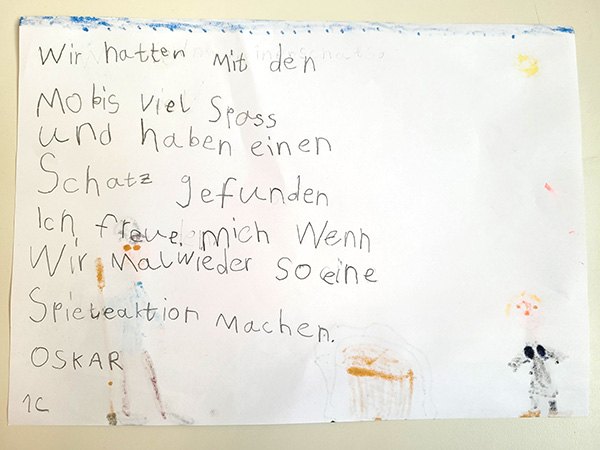 Wir hatten mit den
Mobis viel Spass
und haben einen
Schatz gefunden
Ich freue mich Wenn
Wir Malwieder So eine
Spieleaktion Machen.
OSKAR
1C